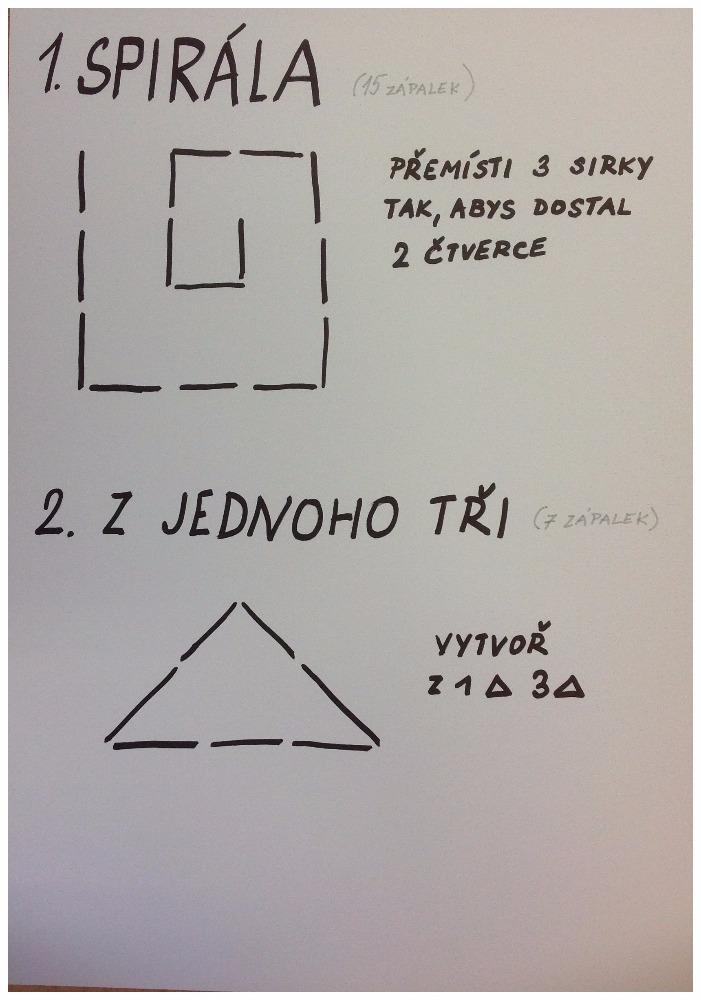 1. SPIRÁLA (15 ZÁPALEK)
PŘEMÍSTI 3 SIRKY
TAK, ABYS DOSTAL
2 ČTVERCE
2. Z JEDNOHO TŘI (7 ZÁPALEK)
VYTVOŘ
Z 1 △ 3 △